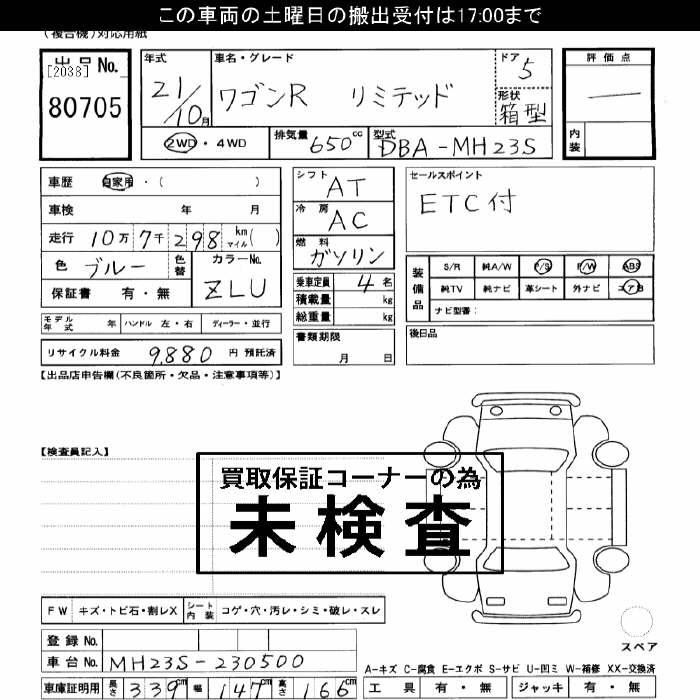 この車両の土曜日の搬出受付は17:00まで
(複合機)対応用紙
出品No. [2038] 80705
年式 21/10月
車名・グレード ワゴンR リミテッド
ドア 5
形状 箱型
評価点 —
内装
2WD・4WD
排気量 650cc
型式 DBA-MH23S
車歴 自家用・( )
車検 年 月
走行 10万7千298 km マイル( )
色 ブルー 色替
カラーNo. ZLU
保証書 有・無
シフト AT
冷房 AC
燃料 ガソリン
乗車定員 4名
積載量 kg
総重量 kg
書類期限 月 日
セールスポイント
ETC付
装備品 S/R 純A/W P/S P/W ABS
純TV 純ナビ 革シート 外ナビ エアB
ナビ型番:
後日品
モデル年式 年 ハンドル 左・右 ディーラー・並行
リサイクル料金 9,880 円 預託済
【出品店申告欄(不良箇所・欠品・注意事項等)】
【検査員記入】
買取保証コーナーの為
未検査
FW キズ・トビ石・割レX シート内装 コゲ・穴・汚レ・シミ・破レ・スレ
登録No.
車台No. MH23S-230500
車庫証明用 長さ 339cm 幅 147cm 高さ 166cm
スペア
A-キズ C-腐食 E-エクボ S-サビ U-凹ミ W-補修 XX-交換済
工具 有・無 ジャッキ 有・無